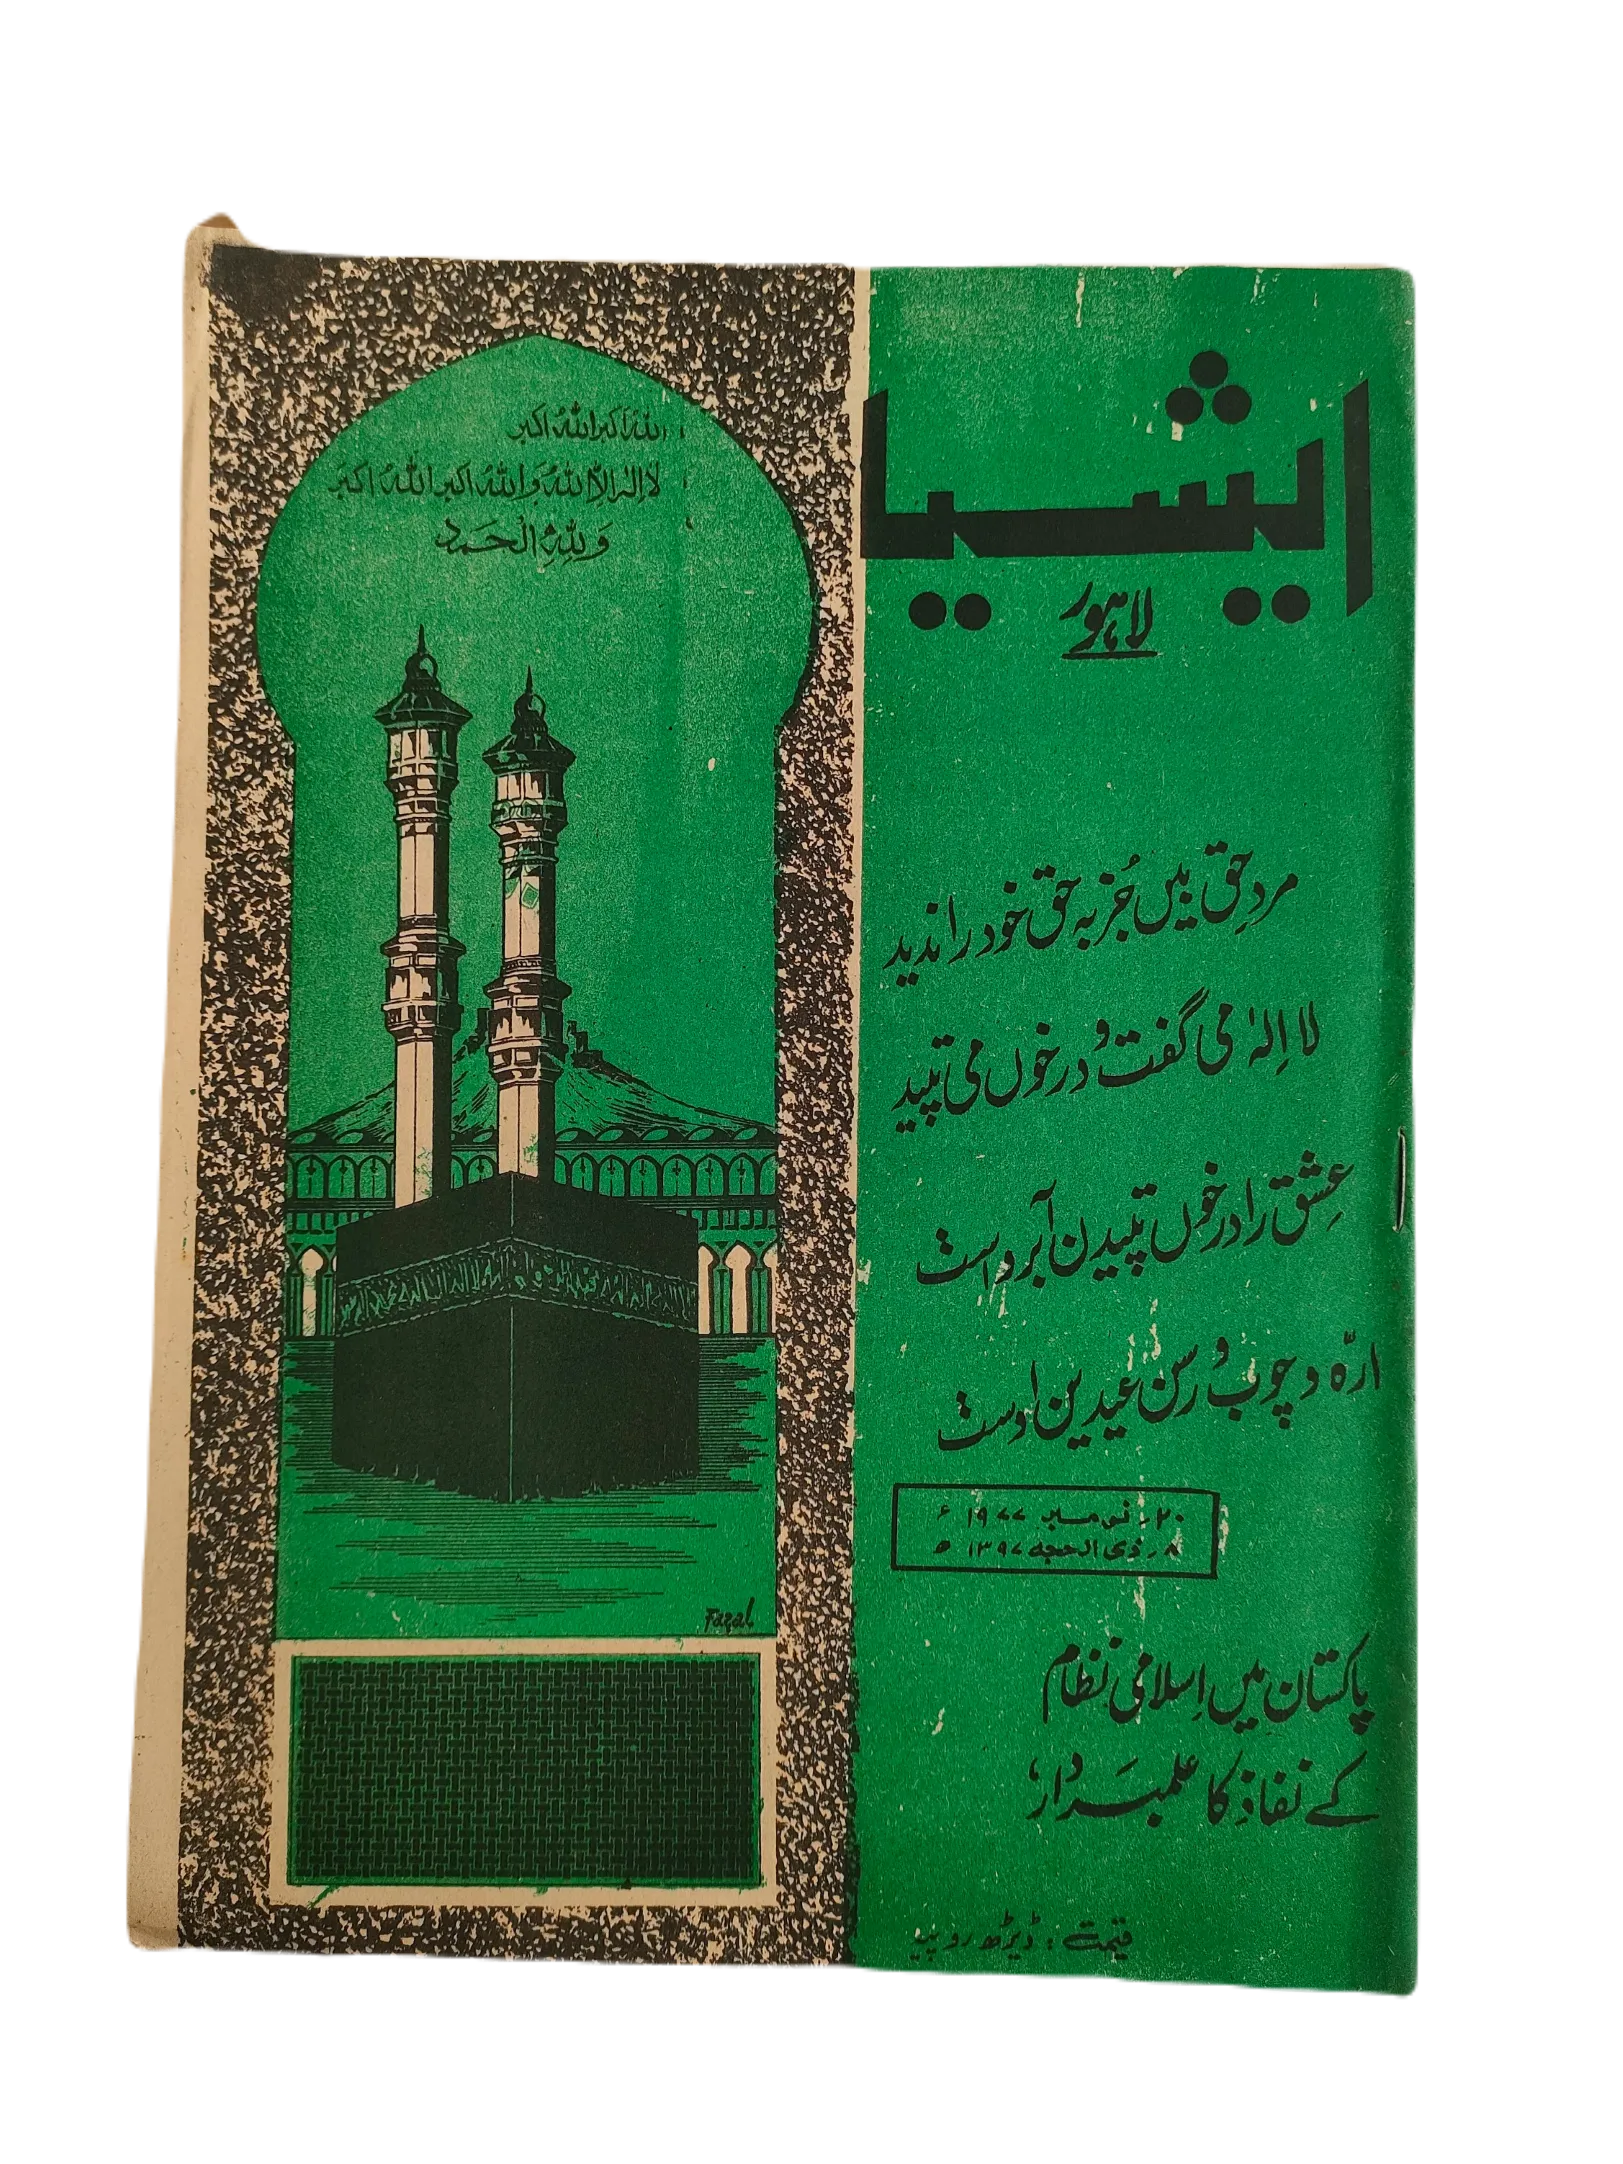 ایشیا
لاہور
اللہُ اکبر اللہُ اکبر
لا الٰہ الا اللہُ وَ اللہُ اکبر اللہُ اکبر
وَ لِلّٰہِ الْحَمد
مردِ حق بیں جُز بہ حق خود را ندید
لا اِلٰہ می گفت و در خوں می تپید
عِشق را در خوں تپیدن آبروست
ارّہ و چوب و رسن عیدین اوست
۲۰ر نومبر ۱۹۷۷ ء
۸ر ذی الحجہ ۱۳۹۷ ھ
پاکستان میں اِسلامی نظام
کے نفاذ کا علمبَردار،
Fazal
قیمت : ڈیڑھ روپیہ